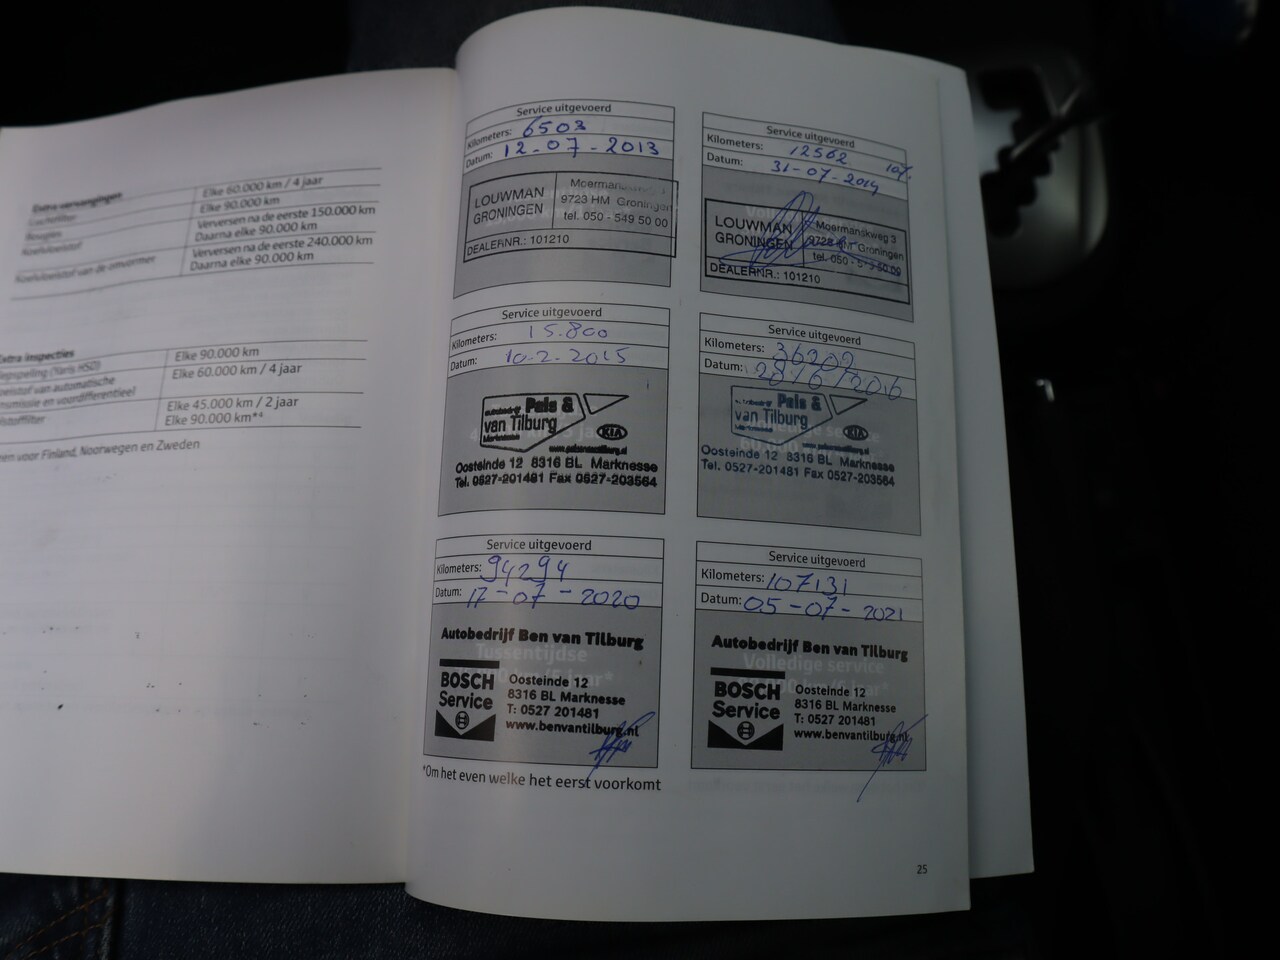 Extra vervangingen
Luchtfilter Elke 60.000 km / 4 jaar
Bougies Elke 90.000 km
Koelvloeistof Verversen na de eerste 150.000 km
Daarna elke 90.000 km
Koelvloeistof van de omvormer Verversen na de eerste 240.000 km
Daarna elke 90.000 km
Extra inspecties
(Yaris HSD) Elke 90.000 km
van automatische Elke 60.000 km / 4 jaar
en voordifferentieel
Elke 45.000 km / 2 jaar
Elke 90.000 km*⁴
voor Finland, Noorwegen en Zweden
Service uitgevoerd
Kilometers: 6503
Datum: 12-07-2013
LOUWMAN
GRONINGEN
9723 HM Groningen
tel. 050 - 549 50 00
DEALERNR.: 101210
Service uitgevoerd
Kilometers: 12562
Datum: 31-07-2014
LOUWMAN
GRONINGEN
Moermanskweg 3
9723 HM Groningen
tel. 050 -
DEALERNR.: 101210
Service uitgevoerd
Kilometers: 15.800
Datum: 10-2-2015
autobedrijf Pals &
van Tilburg
Marknesse
KIA
Oosteinde 12 8316 BL Marknesse
Tel. 0527-201481 Fax 0527-203564
Service uitgevoerd
Kilometers: 36202
Datum: 28/6/2016
Pals &
van Tilburg
KIA
Oosteinde 12 8316 BL Marknesse
Tel. 0527-201481 Fax 0527-203564
Service uitgevoerd
Kilometers: 94294
Datum: 17-07-2020
Autobedrijf Ben van Tilburg
Tussentijdse
BOSCH
Service
Oosteinde 12
8316 BL Marknesse
T: 0527 201481
www.benvantilburg.nl
Service uitgevoerd
Kilometers: 107131
Datum: 05-07-2021
Autobedrijf Ben van Tilburg
Volledige service
BOSCH
Service
Oosteinde 12
8316 BL Marknesse
T: 0527 201481
www.benvantilburg.nl
*Om het even welke het eerst voorkomt
25